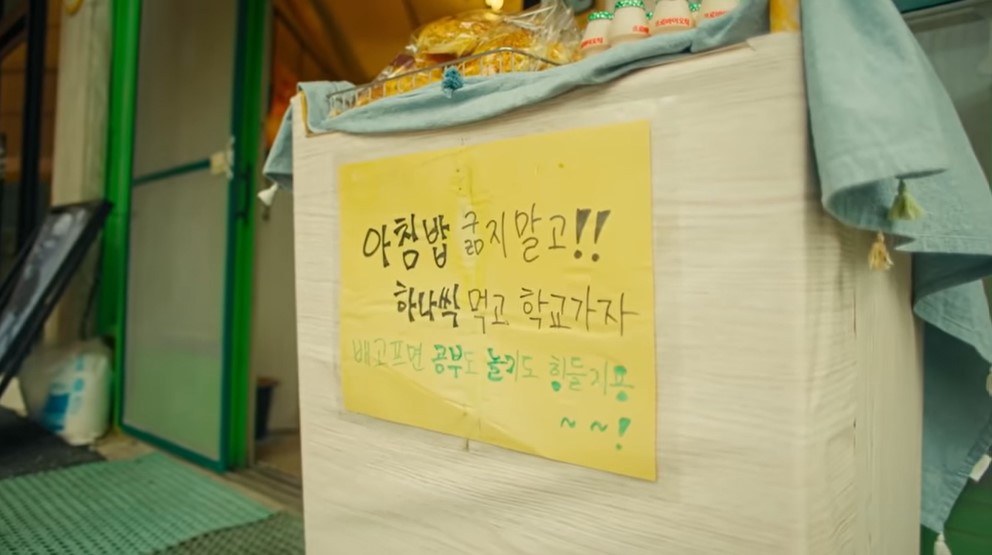 아침밥 굶지말고!!
하나씩 먹고 학교가자
배고프면 공부도 놀기도 힘들지용
~~!